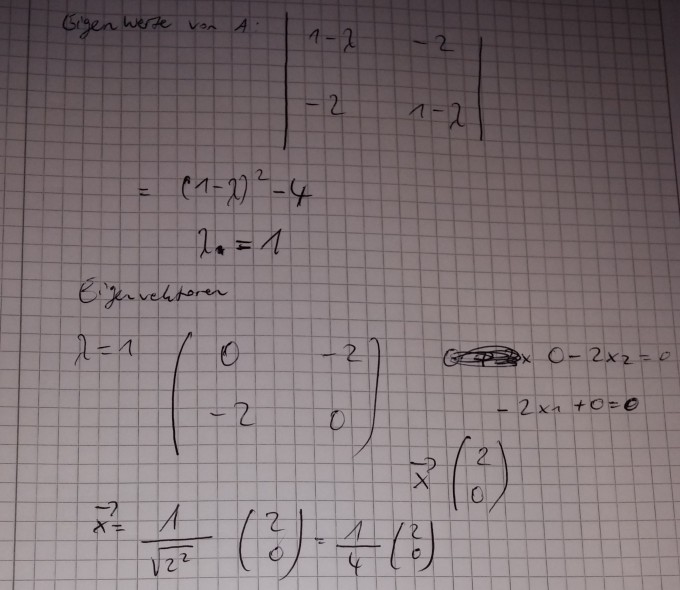 Eigenwerte von A: | 1-λ -2 |
| -2 1-λ |
= (1-λ)² - 4
λ = 1
Eigenvektoren
λ=1 ( 0 -2 ) 0 - 2x₂ = 0
( -2 0 ) -2x₁ + 0 = 0
x⃗ (2 0)
x⃗ = 1/√2² (2 0) = 1/4 (2 0)